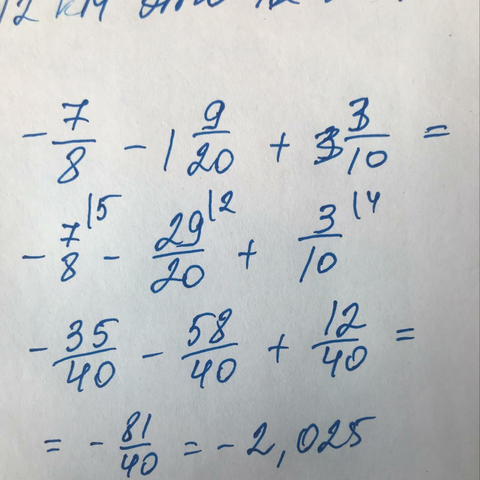 12 км
- 7/8 - 1 9/20 + 3 3/10 =
- 7/8 |5 - 29/20 |2 + 3/10 |4
- 35/40 - 58/40 + 12/40 =
= - 81/40 = - 2,025